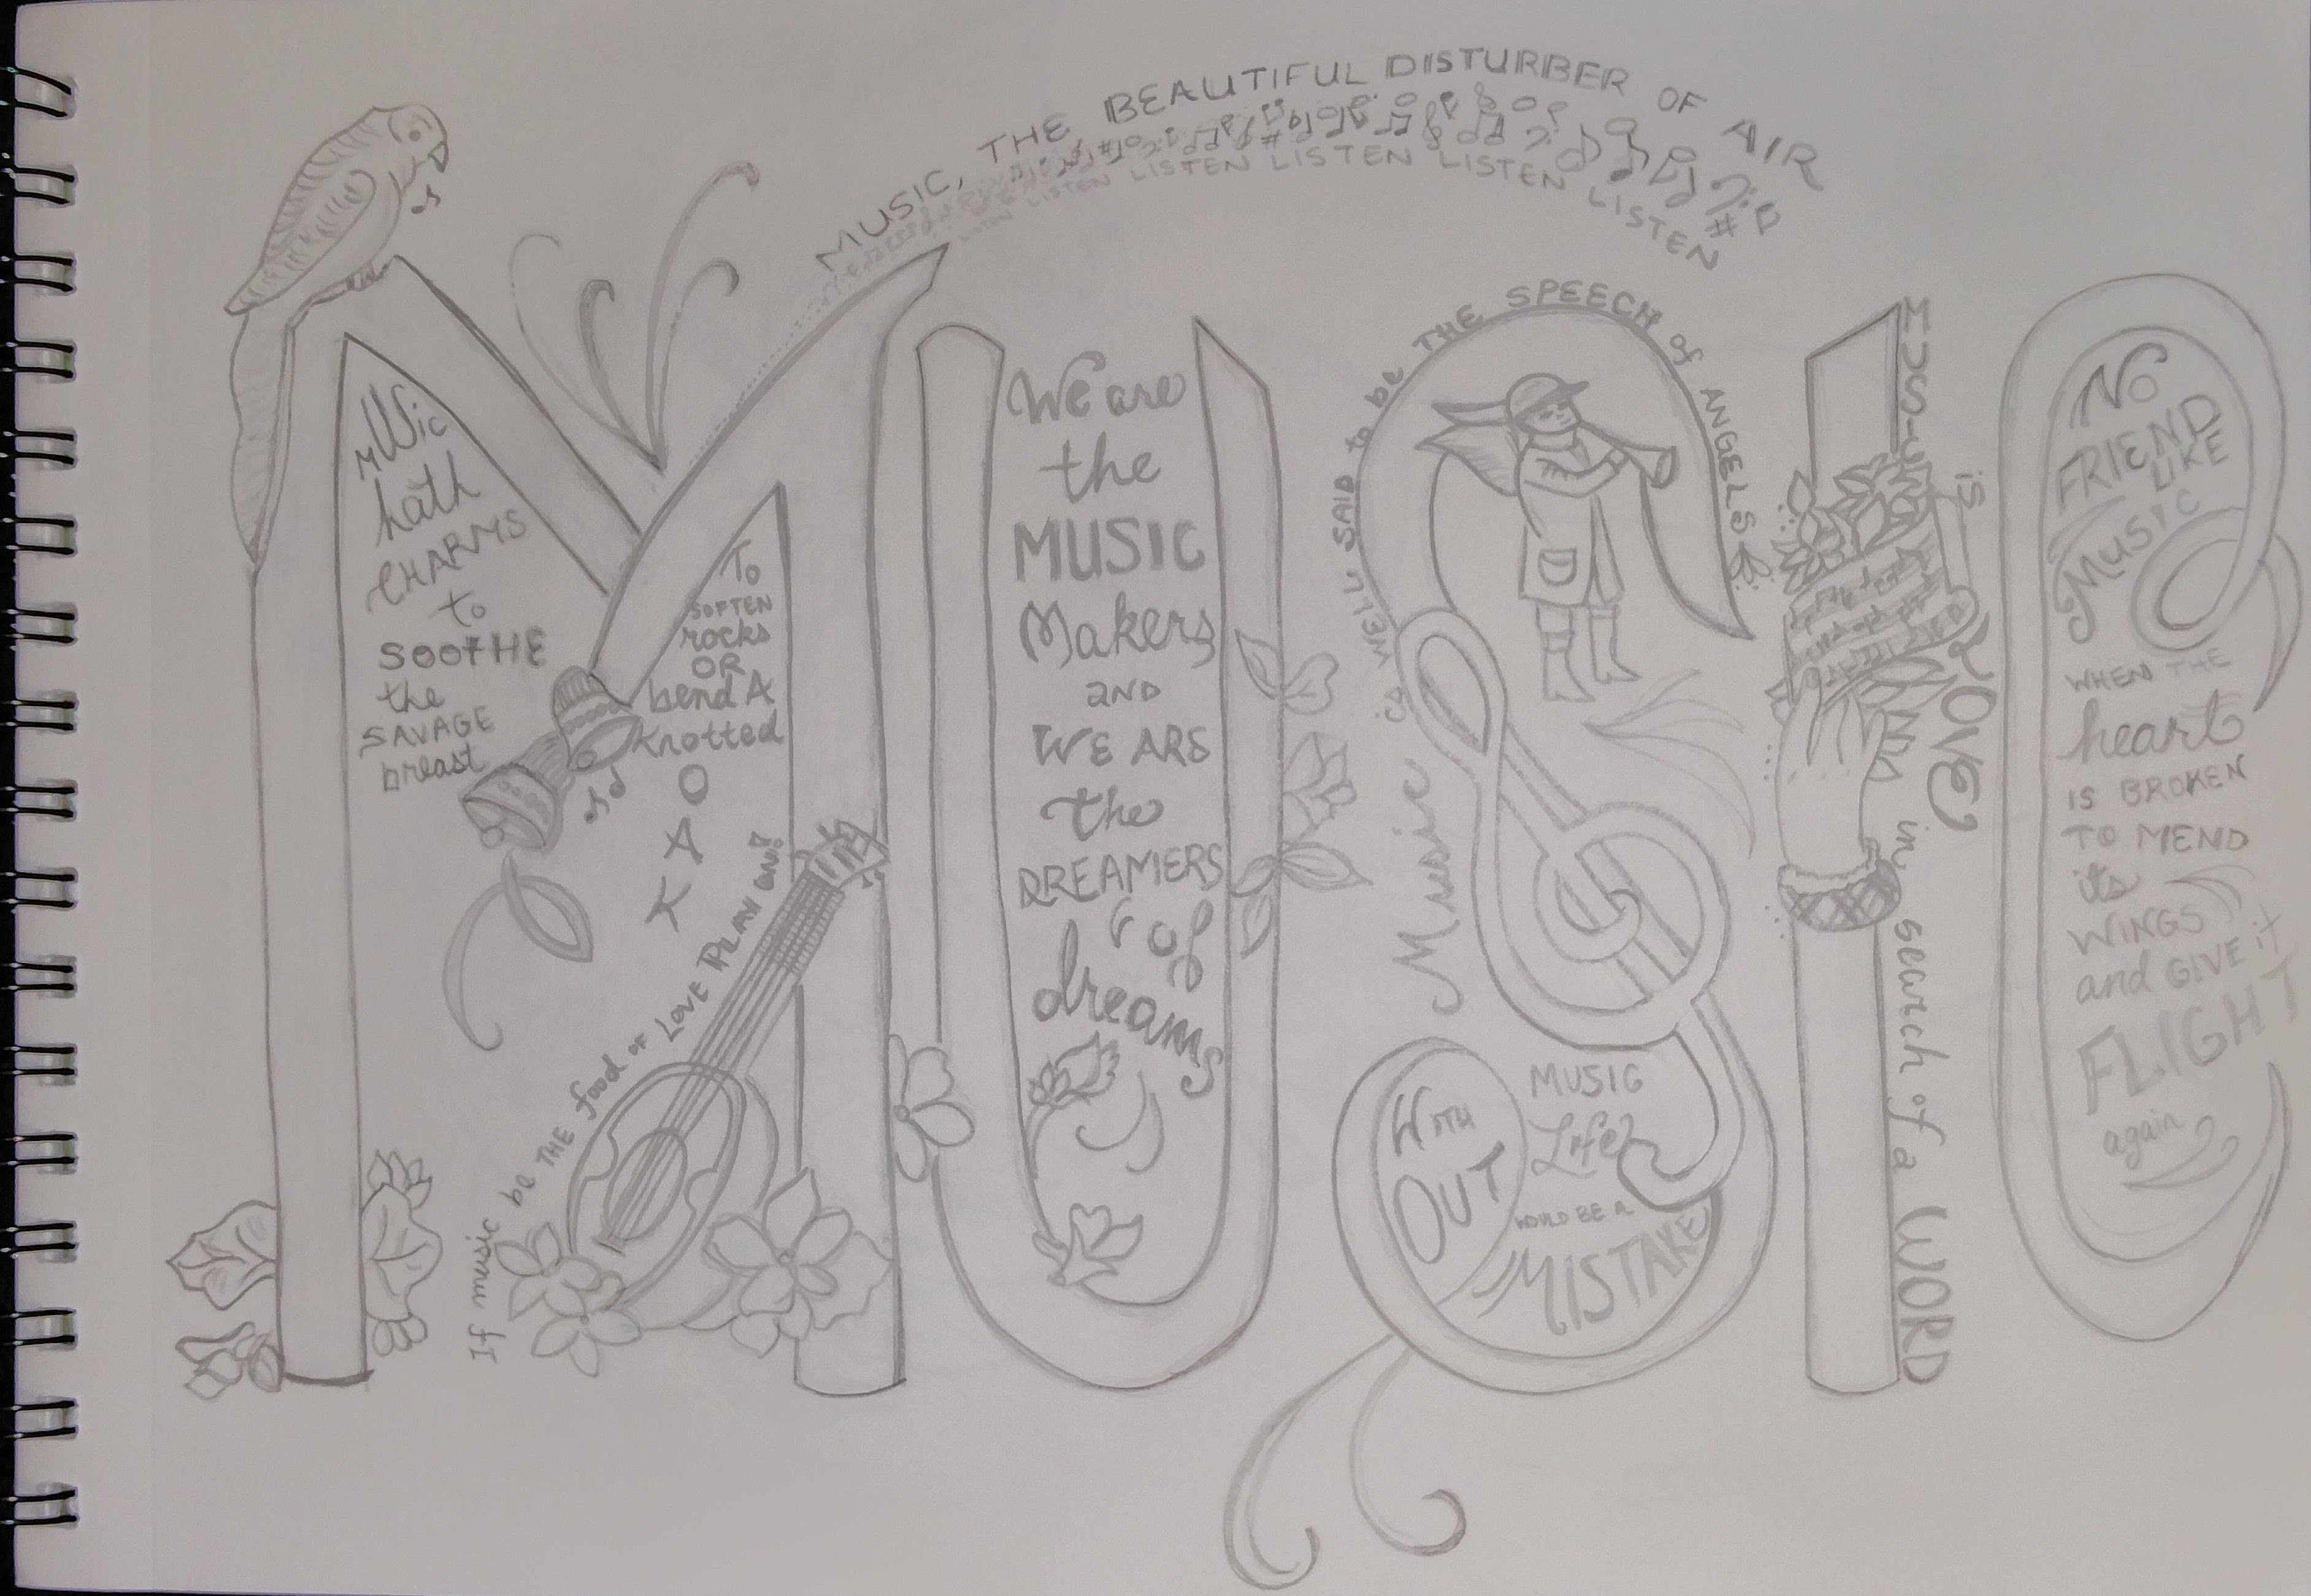 MUSIC, THE BEAUTIFUL DISTURBER OF AIR
LISTEN LISTEN LISTEN LISTEN LISTEN LISTEN LISTEN
MUSiC
hath
CHARMS
to
SOOTHE
the
SAVAGE
breast
To
SOFTEN
rocks
OR
bend A
Knotted
O
A
K
If music be THE food OF LOVE PLAY on!
We are
the
MUSIC
Makers
AND
WE ARE
the
DREAMERS
of
dreams
Music is WELL SAID to be THE SPEECH of ANGELS
WITH
OUT
MUSIC
Life
WOULD BE A
MISTAKE
MUSIC is LOVE in search of a WORD
No
FRIEND
LIKE
MUSIC
WHEN THE
heart
IS BROKEN
TO MEND
its
WINGS
and GIVE it
FLIGHT
again